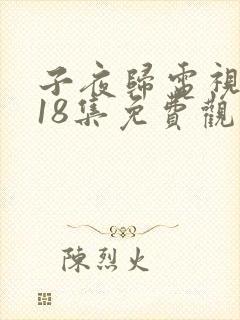 子夜歸電視
18集免費觀
陳烈火